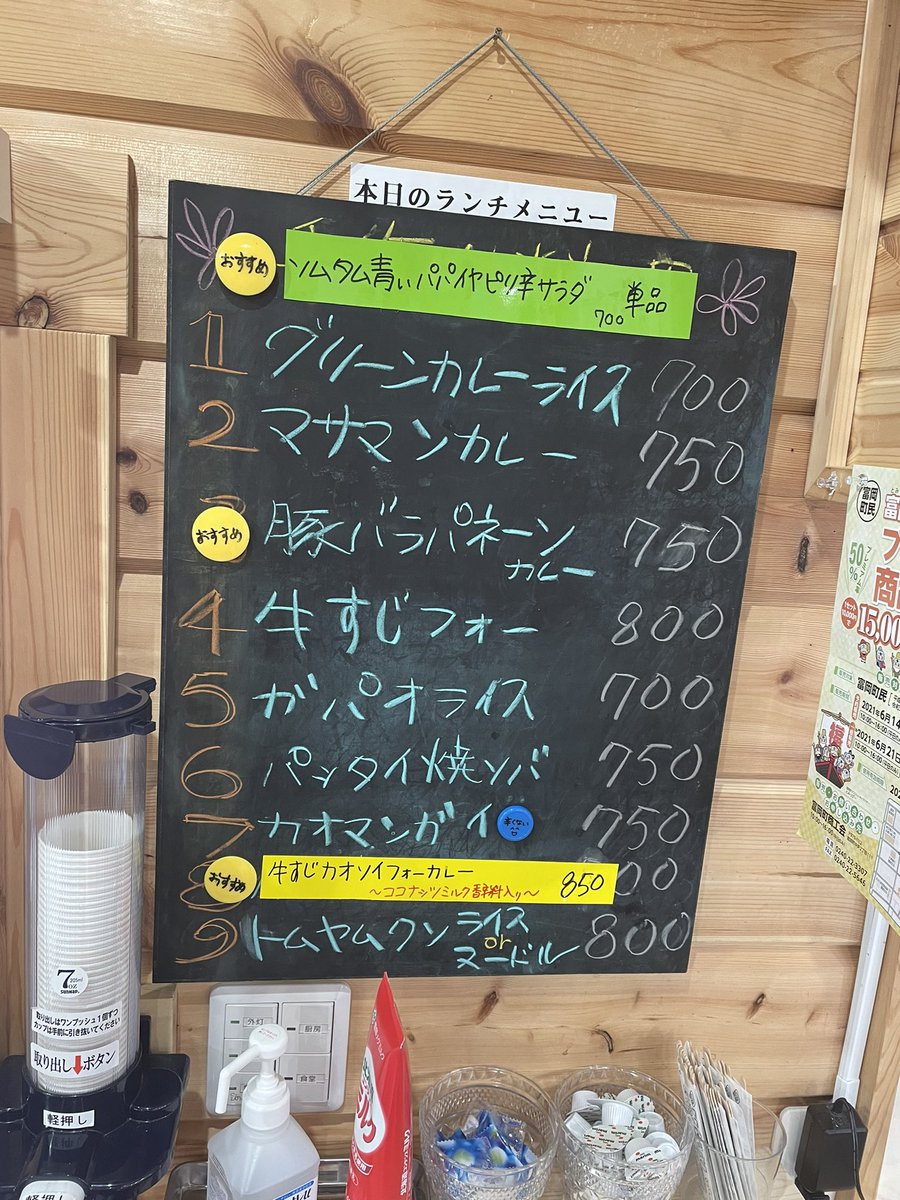 本日のランチメニュー
おすすめ
ソムタム青いパパイヤピリ辛サラダ 700 単品
1 グリーンカレーライス 700
2 マサマンカレー 750
おすすめ 豚バラパネーンカレー 750
4 牛すじフォー 800
5 ガパオライス 700
6 パッタイ焼ソバ 750
7 カオマンガイ 辛くない 750
8 おすすめ 牛すじカオソイフォーカレー 850
～ココナッツミルク香辛料入り～
9 トムヤムクン ライス or ヌードル 800
富岡町民
50%
15,00
富岡町民
2021年6月14
2021年6月21日
富岡町商工会
0240-22-3307
0240-22-5646
外灯
厨房
食堂
7 OZ
205ml
SUNNAP
取り出しはワンプッシュ1個ずつ
カップは手前に引き抜いてください
取り出し↓ボタン
軽押し
軽押し
ミルク